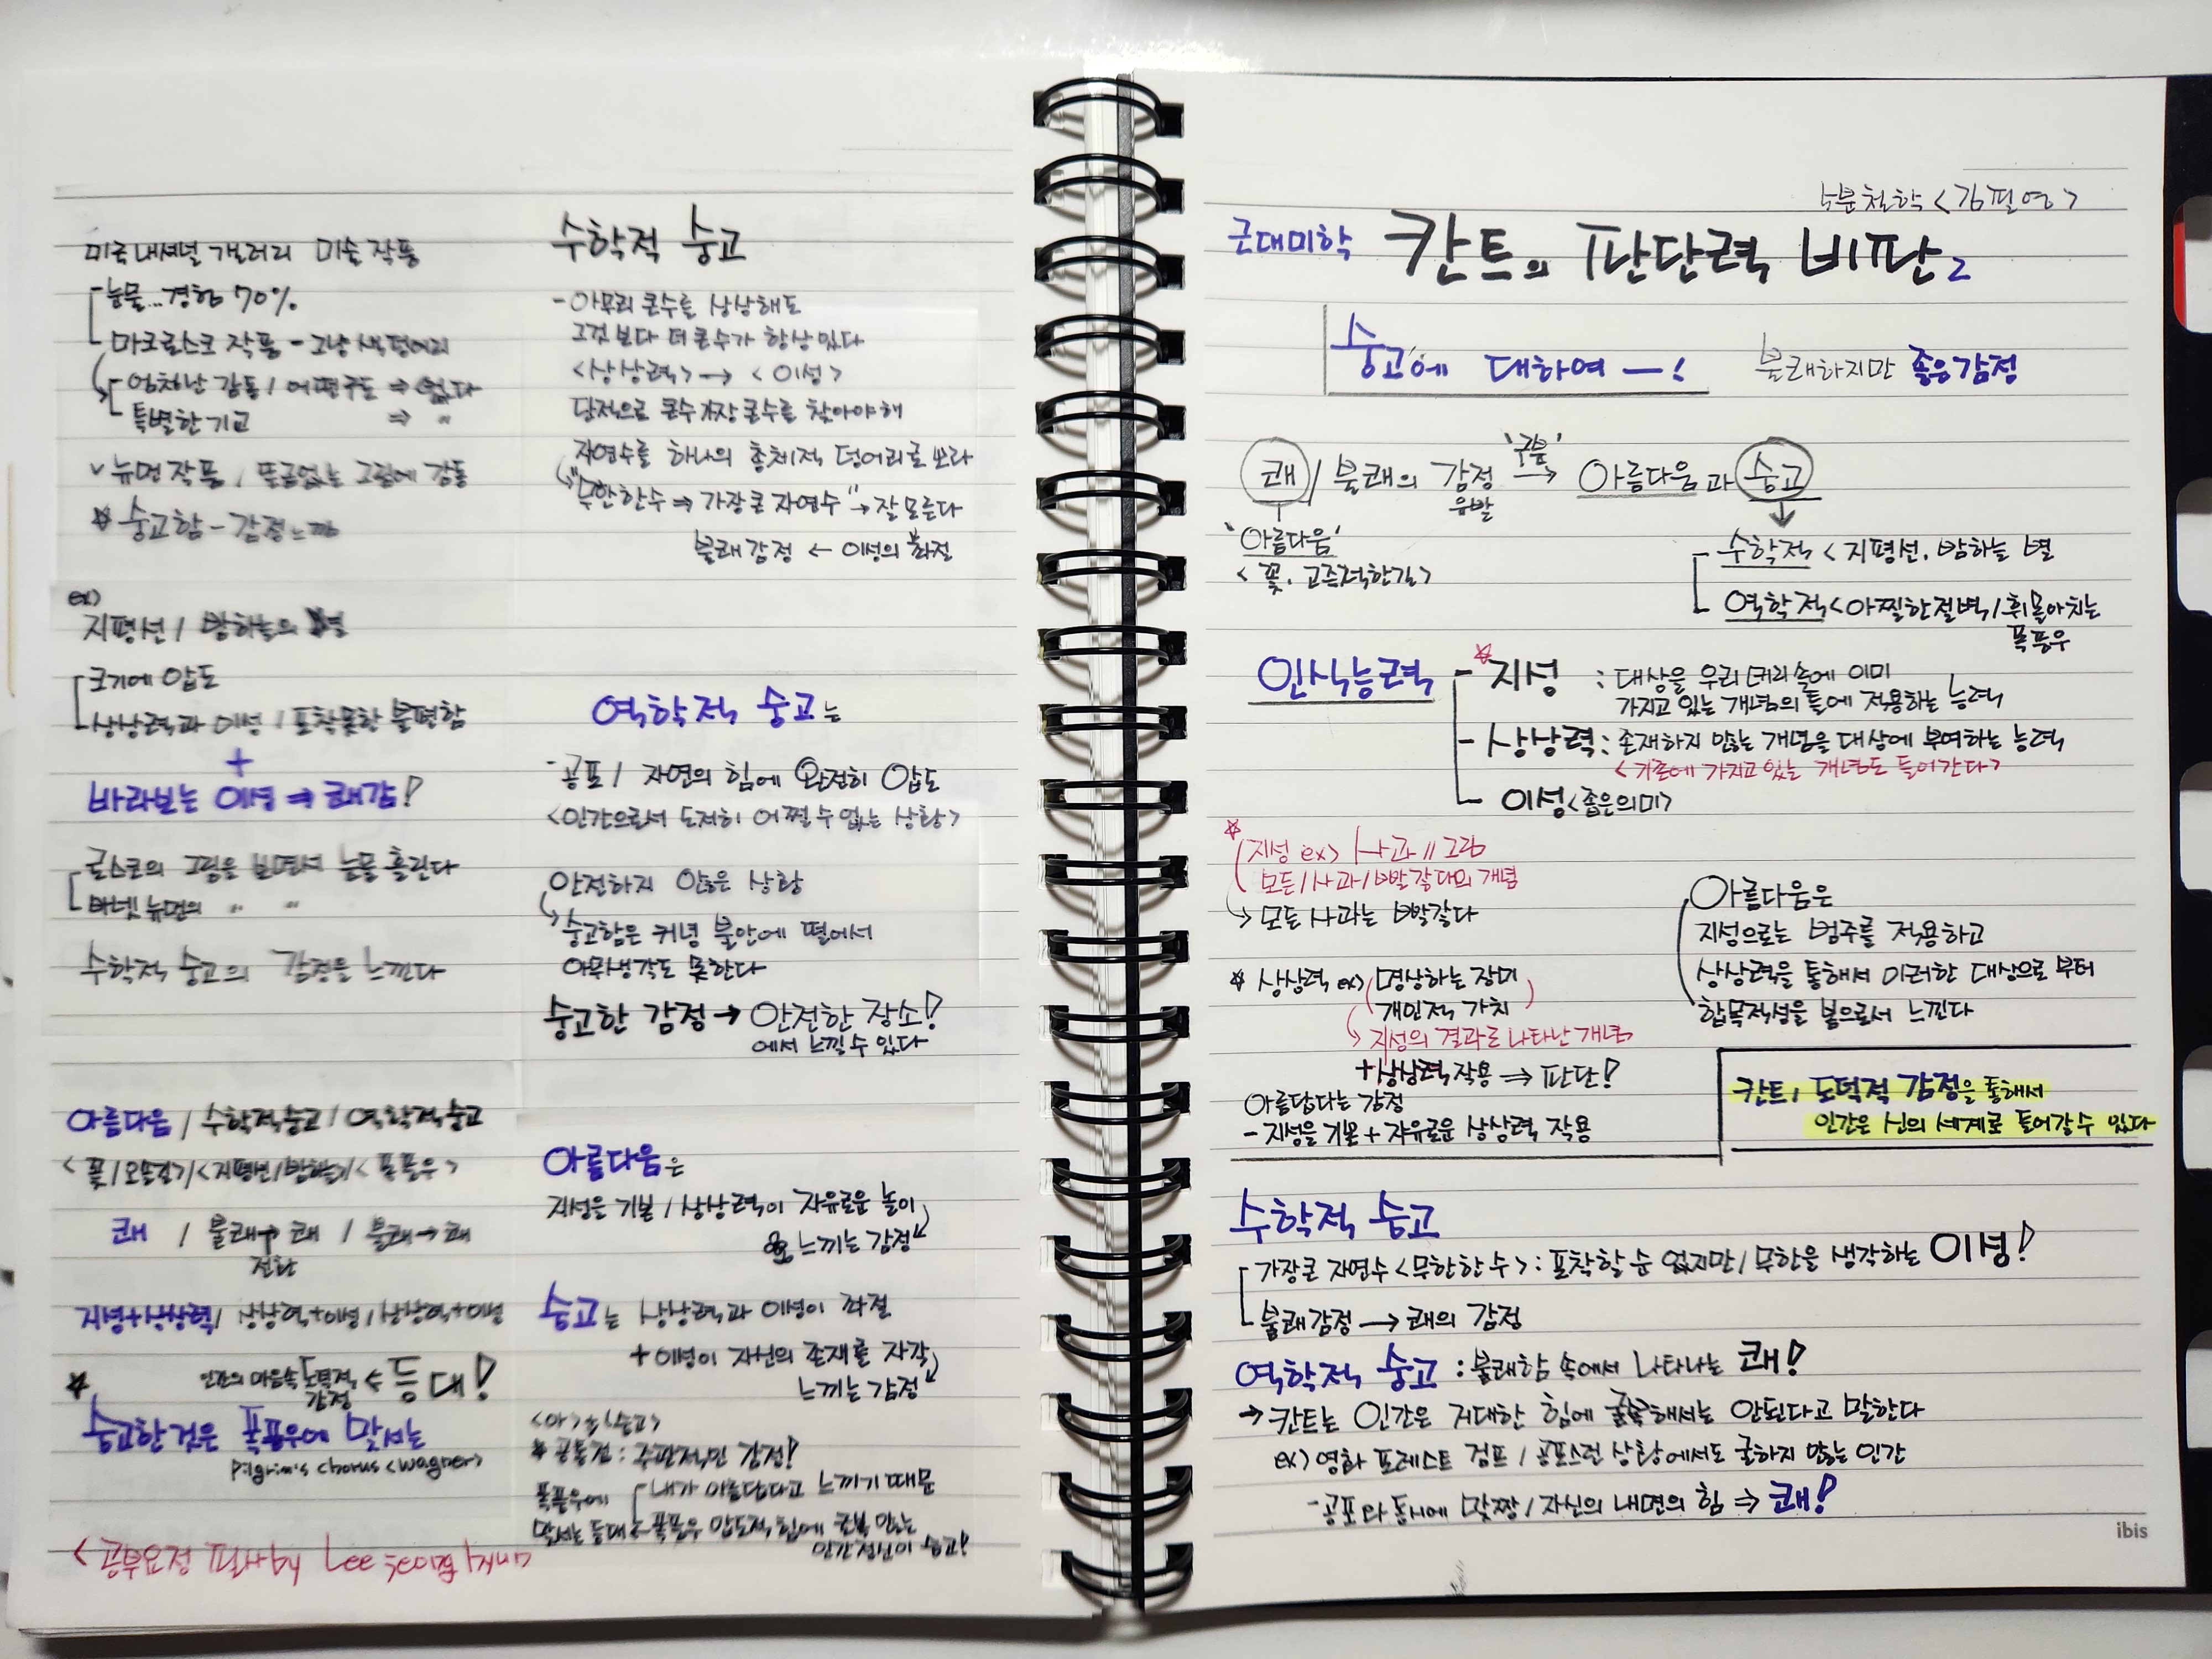 미국내셔널 갤러리 미술작품
눈물...경험 70%
마크로스코 작품 - 그냥 색덩어리
엄청난 감동 / 어떤구도 ⇒ 없다
특별한기교 ⇒ "
v 뉴먼작품 / 뜬금없는 그림에 감동
☆ 숭고함 - 감정느낌
ex)
지평선 / 밤하늘의 별
크기에 압도
상상력과 이성 / 포착못한 불편함
+
바라보는 이성 ⇒ 쾌감!
로스코의 그림을 보면서 눈물 흘린다
바넷 뉴먼의 " "
수학적 숭고의 감정을 느낀다
아름다움 / 수학적숭고 / 역학적숭고
< 꽃 / 오솔길 > < 지평선 / 밤하늘 > < 폭풍우 >
쾌 / 불쾌→쾌 / 불쾌→쾌
전환
지성+상상력 / 상상력+이성 / 상상력+이성
☆ 인간의 마음속 도덕적 감정 ← 등대!
숭고한것은 폭풍우에 맞서는
Pilgrim's chorus <wagner>
< 공부요정 필사 by Lee jeong hyun
수학적 숭고
- 아무리 큰수를 상상해도
그것보다 더 큰수가 항상 있다
<상상력> → < 이성 >
단적으로 큰수 가장 큰수를 찾아야해
자연수를 하나의 총체적 덩어리로 보라
"무한한수 ⇒ 가장큰 자연수" → 잘 모른다
불쾌감정 ← 이성의 좌절
역학적 숭고는
- 공포 / 자연의 힘에 완전히 압도
<인간으로서 도저히 어쩔 수 없는 상황>
안전하지 않은 상황
숭고함은 커녕 불안에 떨어서
아무생각도 못한다
숭고한 감정 → 안전한 장소!
에서 느낄 수 있다
아름다움은
지성을 기본 / 상상력이 자유로운 놀이
느끼는 감정
숭고는 상상력과 이성이 좌절
+ 이성이 자신의 존재를 자각
느끼는 감정
<아>와 <숭고>
☆ 공통점 : 주관적인 감정!
내가 아름답다고 느끼기 때문
폭풍우에
맞서는 등대 폭풍우 압도적 힘에 굴복 않는
인간정신이 숭고!
5분철학 <김필영>
근대미학 칸트의 판단력 비판2
숭고에 대하여 —! 불쾌하지만 좋은감정
쾌 / 불쾌의 감정 유발 '구분' → 아름다움과 숭고
'아름다움'
< 꽃. 고즈넉한길 >
수학적 < 지평선. 밤하늘 별
역학적 < 아찔한절벽 / 휘몰아치는
폭풍우
인식능력 ☆ 지성 : 대상을 우리 머리속에 이미
가지고 있는 개념의 틀에 적용하는 능력
상상력 : 존재하지 않는 개념을 대상에 부여하는 능력
< 기존에 가지고 있는 개념도 들어간다 >
이성 <좁은의미>
☆
지성 ex) 사과 // 그림
모든 / 사과 / 빨갛다의 개념
→ 모든 사과는 빨갛다
☆ 상상력 ex) 명상하는 장미
개인적 가치
지성의 결과로 나타난 개념
+상상력 작용 ⇒ 판단!
아름답다는 감정
- 지성을 기본 + 자유로운 상상력 작용
아름다움은
지성으로는 범주를 적용하고
상상력을 통해서 이러한 대상으로 부터
합목적성을 봄으로서 느낀다
칸트 / 도덕적 감정을 통해서
인간은 신의 세계로 들어갈수 있다
수학적 숭고
가장큰 자연수 <무한한 수> : 포착할 순 없지만 / 무한을 생각하는 이성!
불쾌감정 → 쾌의 감정
역학적 숭고 : 불쾌함 속에서 나타나는 쾌!
→ 칸트는 인간은 거대한 힘에 굴복해서는 안된다고 말한다
ex) 영화 포레스트 검프 / 공포스런 상황에서도 굴하지 않는 인간
- 공포와 동시에 맞짱 / 자신의 내면의 힘 ⇒ 쾌!
ibis